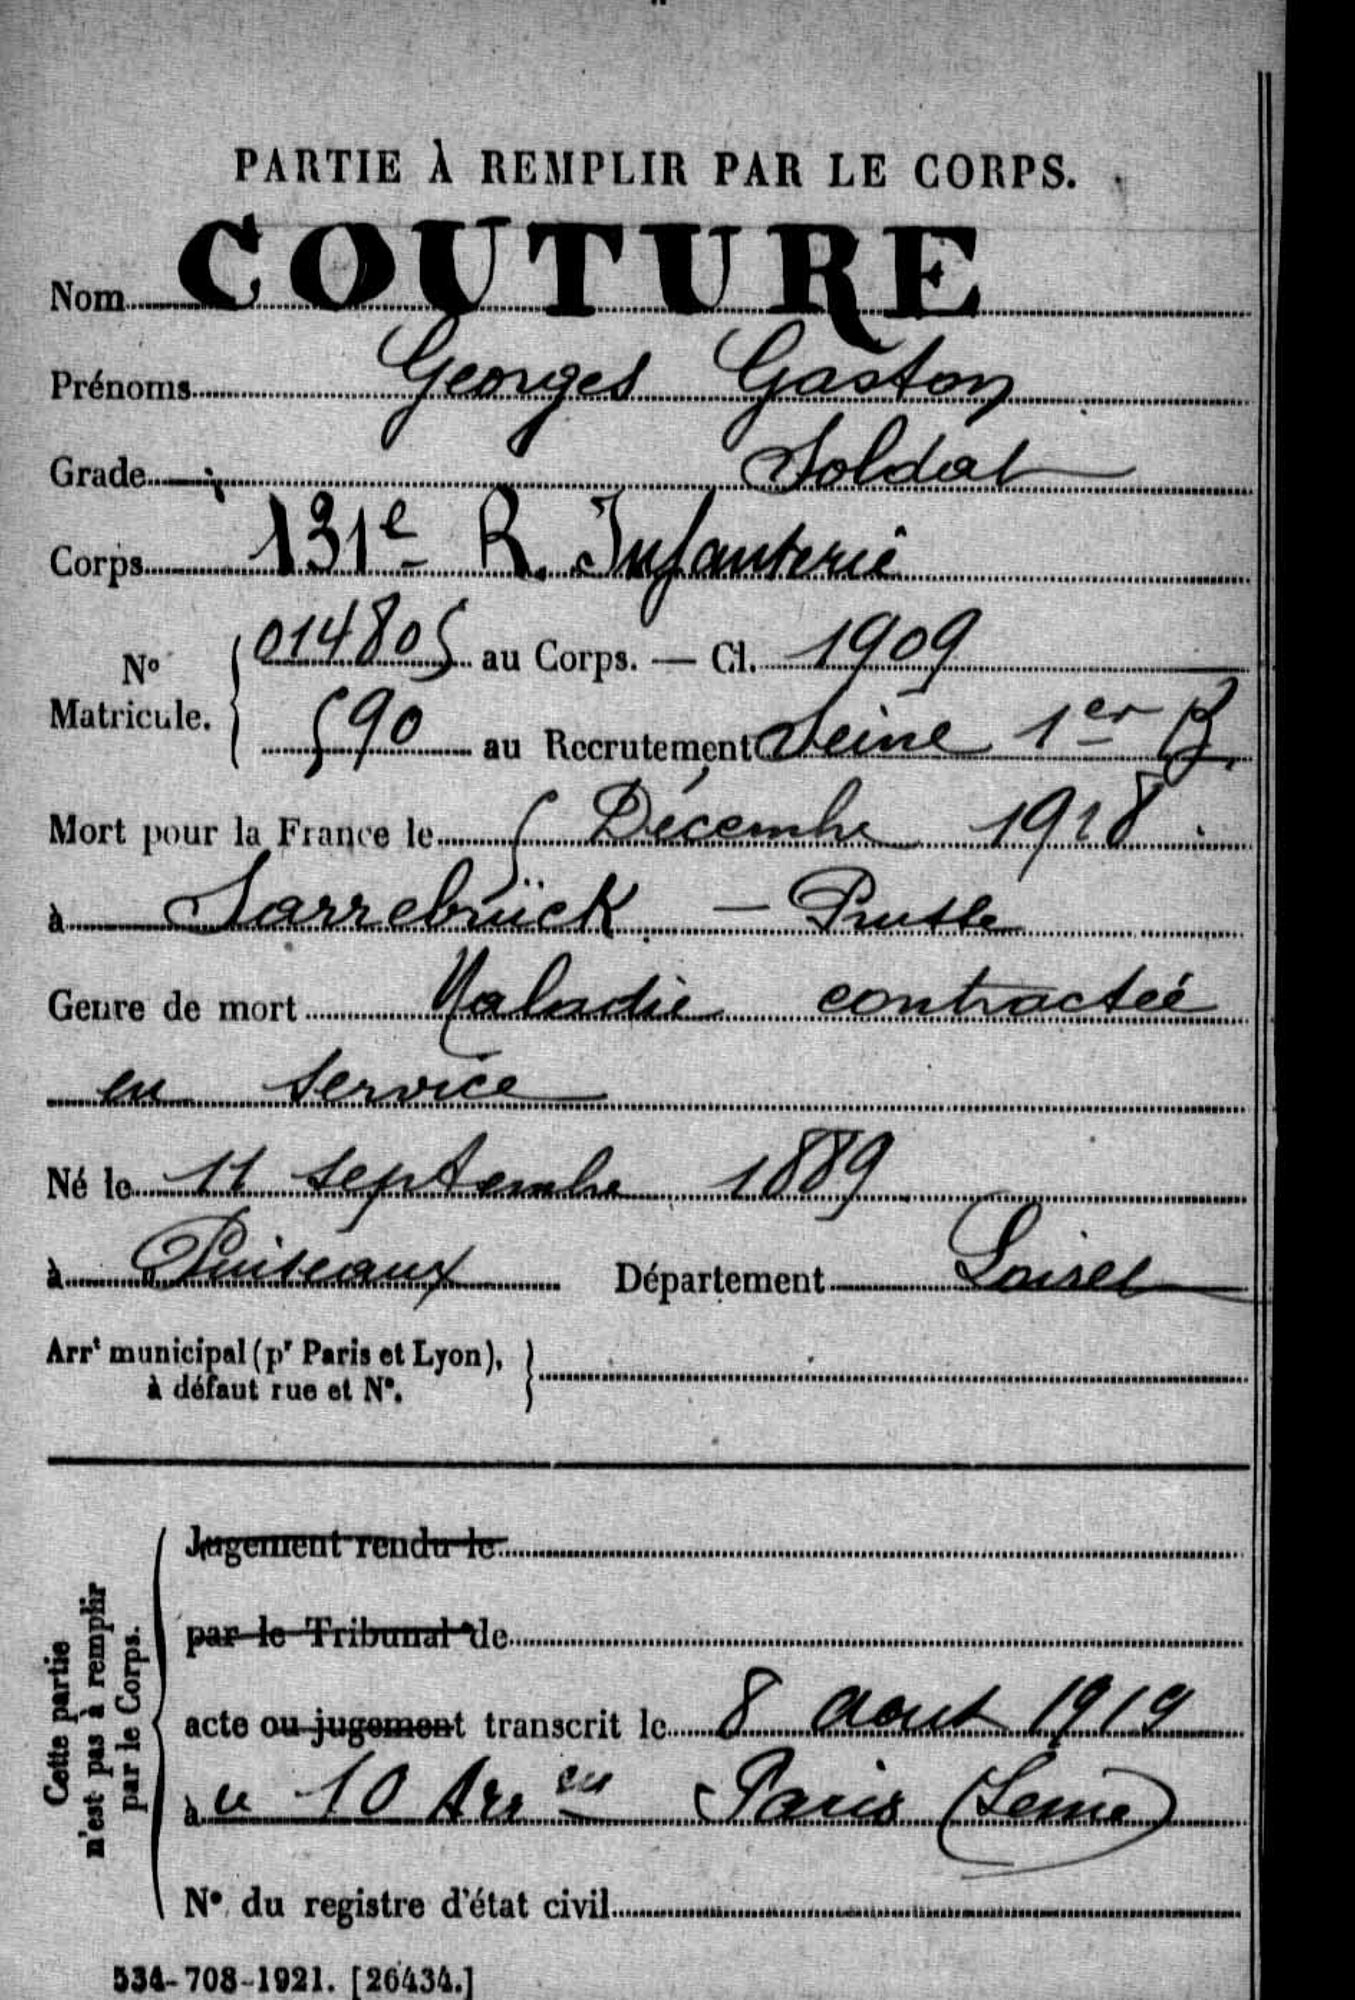 PARTIE À REMPLIR PAR LE CORPS.
Nom COUTURE
Prénoms Georges Gaston
Grade Soldat
Corps 131e R. Infanterie
No Matricule. 014805 au Corps. — Cl. 1909
590 au Recrutement Seine 1er B.
Mort pour la France le 5 Décembre 1918
à Sarrebrück — Prusse
Genre de mort Maladie contractée
en service
Né le 11 septembre 1889
à Puiseaux Département Loiret
Arrt municipal (pr Paris et Lyon),
à défaut rue et No.
Cette partie
n'est pas à remplir
par le Corps.
Jugement rendu le
par le Tribunal de
acte ou jugement transcrit le 8 aout 1919
au 10 Arr en Paris (Seine)
No du registre d'état civil
534-708-1921. [26434.]